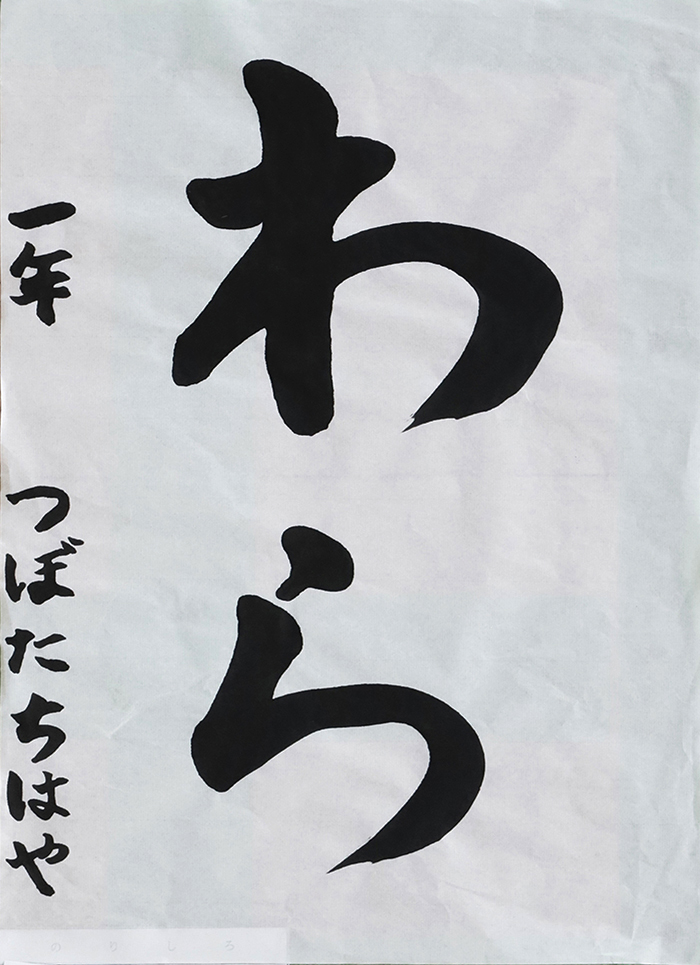 わら
一年 つぼたちはや
のりしろ